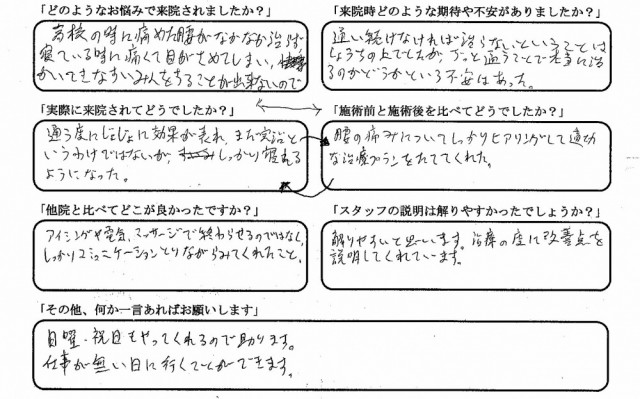 「どのようなお悩みで来院されましたか?」
高校の時に痛めた腰がなかなか治らず
寝ている時に痛くて目がさめてしまい、
すいみんをとることが出来ないので
「来院時どのような期待や不安がありましたか?」
通い続けなければ治らないということは
しょうちの上でしたが、ずっと通うことで本当に治
るのかどうかという不安はあった。
「実際に来院されてどうでしたか?」
通う度にじょじょに効果が表れ、まだ完治と
いうわけではないが、しっかり寝れる
ようになった。
「施術前と施術後を比べてどうでしたか?」
腰の痛みについてしっかりヒアリングして適切
な治療プランをたててくれた。
「他院と比べてどこが良かったですか?」
アイシングや電気、マッサージで終わらせるのではなく、
しっかりコミュニケーションとりながらみてくれたこと。
「スタッフの説明は解りやすかったでしょうか?」
解りやすいと思います。治療の度に改善点を
説明してくれています。
「その他、何か一言あればお願いします」
日曜・祝日もやってくれるので助ります。
仕事が無い日に行くことができます。